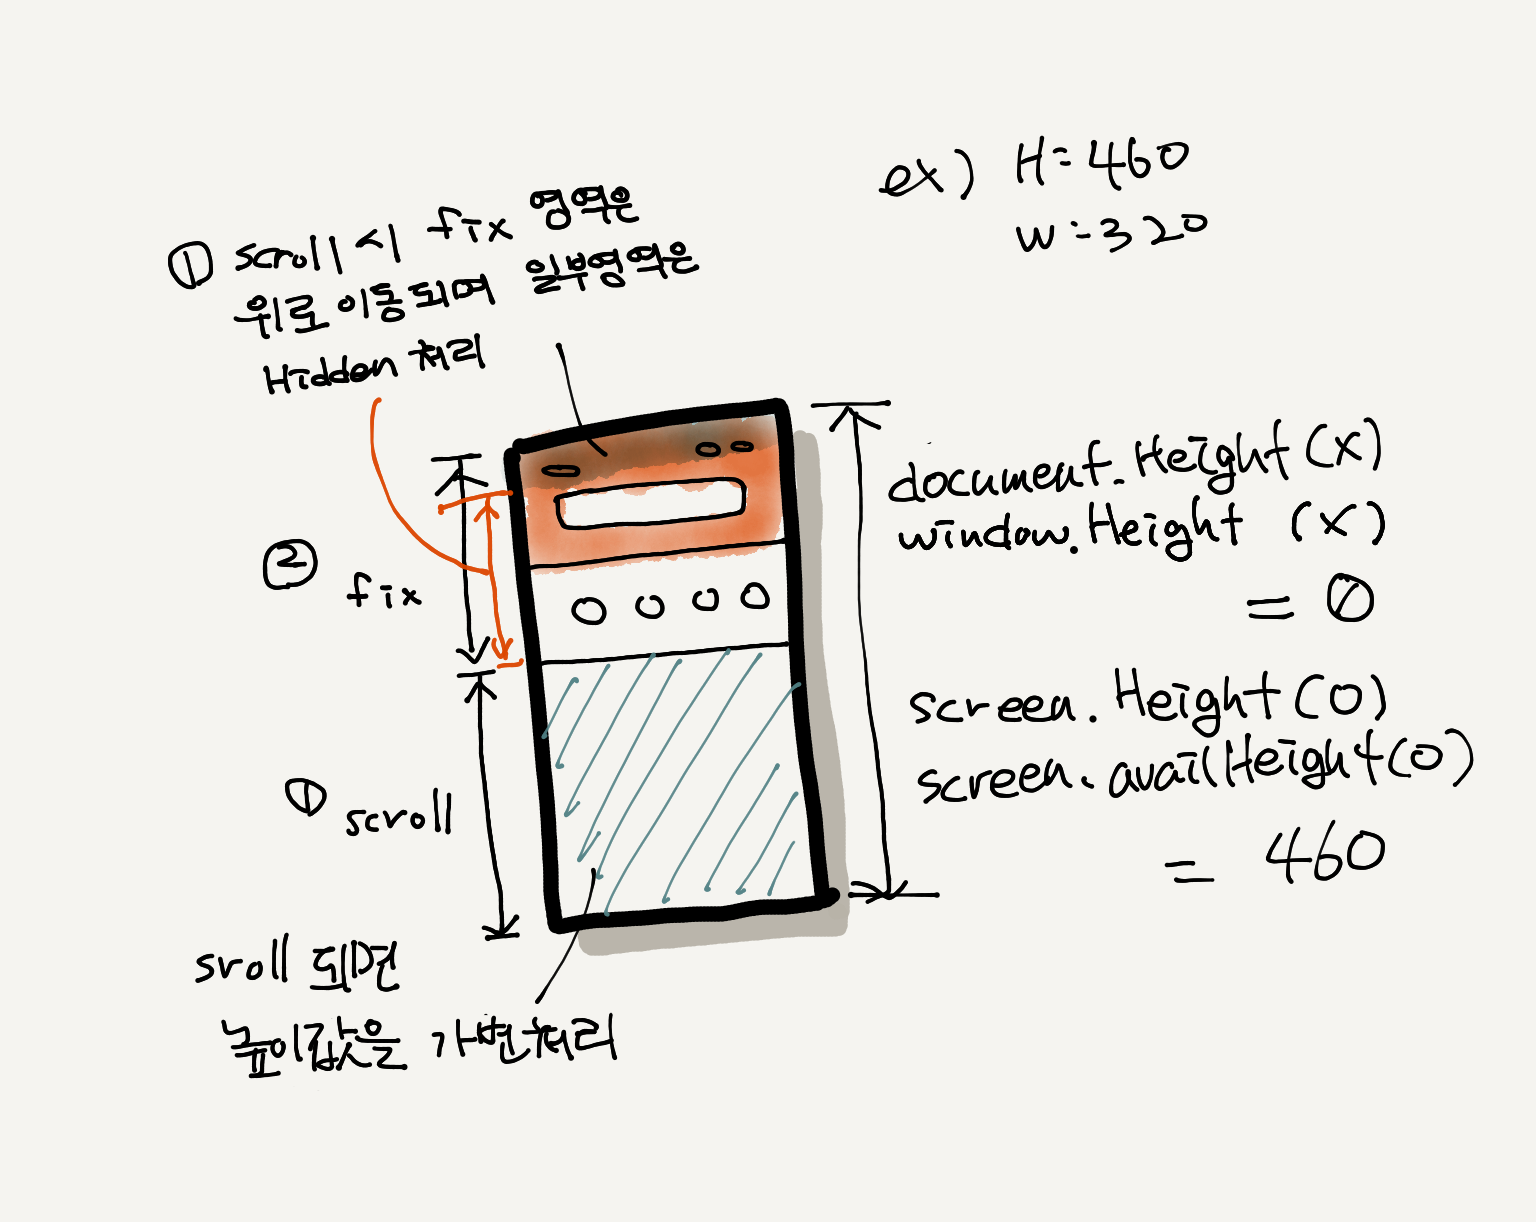 ex) H=460
W=320
① scroll 시 fix 영역은
위로 이동되며 일부영역은
Hidden 처리
document.Height (X)
window.Height (X)
= 0
② fix
screen.Height (O)
screen.availHeight (O)
= 460
① scroll
sroll 되면
높이값을 가변처리